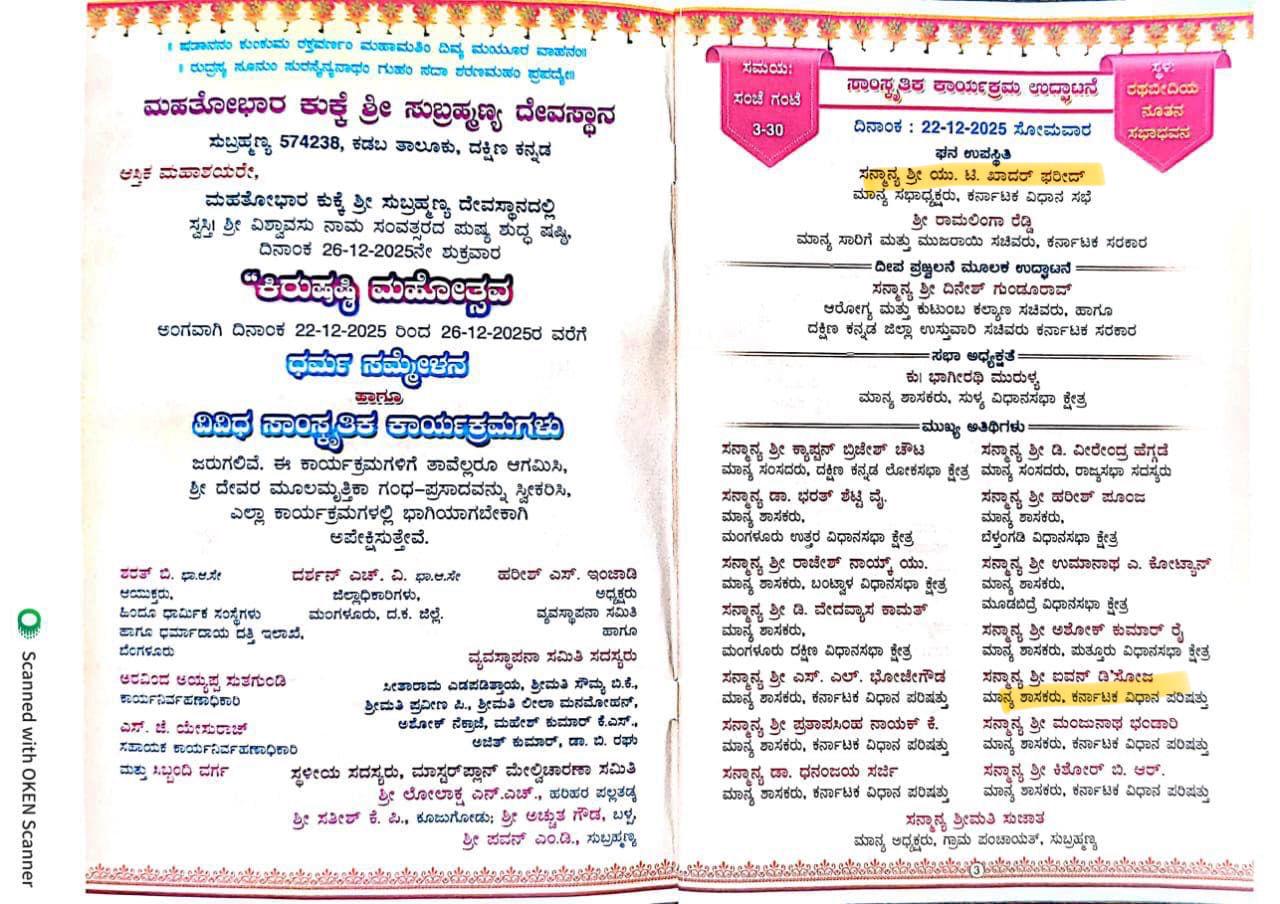 ॥ ಷಡಾನನಂ ಕುಂಕುಮ ರಕ್ತವರ್ಣಂ ಮಹಾಮತಿಂ ದಿವ್ಯ ಮಯೂರ ವಾಹನಂ॥
॥ ರುದ್ರಸ್ಯ ಸೂನುಂ ಸುರಸೈನ್ಯನಾಥಂ ಗುಹಂ ಸದಾ ಶರಣಮಹಂ ಪ್ರಪದ್ಯೇ॥
ಮಹತೋಭಾರ ಕುಕ್ಕೆ ಶ್ರೀ ಸುಬ್ರಹ್ಮಣ್ಯ ದೇವಸ್ಥಾನ
ಸುಬ್ರಹ್ಮಣ್ಯ 574238, ಕಡಬ ತಾಲೂಕು, ದಕ್ಷಿಣ ಕನ್ನಡ
ಆಸ್ತಿಕ ಮಹಾಶಯರೇ,
ಮಹತೋಭಾರ ಕುಕ್ಕೆ ಶ್ರೀ ಸುಬ್ರಹ್ಮಣ್ಯ ದೇವಸ್ಥಾನದಲ್ಲಿ
ಸ್ವಸ್ತಿ। ಶ್ರೀ ವಿಶ್ವಾವಸು ನಾಮ ಸಂವತ್ಸರದ ಪುಷ್ಯ ಶುದ್ಧ ಷಷ್ಠಿ,
ದಿನಾಂಕ 26-12-2025ನೇ ಶುಕ್ರವಾರ
“ಕಿರುಷಷ್ಠಿ ಮಹೋತ್ಸವ
ಅಂಗವಾಗಿ ದಿನಾಂಕ 22-12-2025 ರಿಂದ 26-12-2025ರ ವರೆಗೆ
ಧರ್ಮ ಸಮ್ಮೇಳನ
ಹಾಗೂ
ವಿವಿಧ ಸಾಂಸ್ಕೃತಿಕ ಕಾರ್ಯಕ್ರಮಗಳು
ಜರುಗಲಿವೆ. ಈ ಕಾರ್ಯಕ್ರಮಗಳಿಗೆ ತಾವೆಲ್ಲರೂ ಆಗಮಿಸಿ,
ಶ್ರೀ ದೇವರ ಮೂಲಮೃತ್ತಿಕಾ ಗಂಧ–ಪ್ರಸಾದವನ್ನು ಸ್ವೀಕರಿಸಿ,
ಎಲ್ಲಾ ಕಾರ್ಯಕ್ರಮಗಳಲ್ಲಿ ಭಾಗಿಯಾಗಬೇಕಾಗಿ
ಅಪೇಕ್ಷಿಸುತ್ತೇವೆ.
ಶರತ್ ಬಿ. ಭಾ.ಆ.ಸೇ
ಆಯುಕ್ತರು,
ಹಿಂದೂ ಧಾರ್ಮಿಕ ಸಂಸ್ಥೆಗಳು
ಹಾಗೂ ಧರ್ಮಾದಾಯ ದತ್ತಿ ಇಲಾಖೆ,
ಬೆಂಗಳೂರು
ದರ್ಶನ್ ಎಚ್. ವಿ. ಭಾ.ಆ.ಸೇ
ಜಿಲ್ಲಾಧಿಕಾರಿಗಳು,
ಮಂಗಳೂರು, ದ.ಕ. ಜಿಲ್ಲೆ.
ಹರೀಶ್ ಎಸ್. ಇಂಜಾಡಿ
ಅಧ್ಯಕ್ಷರು
ವ್ಯವಸ್ಥಾಪನಾ ಸಮಿತಿ
ಹಾಗೂ
ವ್ಯವಸ್ಥಾಪನಾ ಸಮಿತಿ ಸದಸ್ಯರು
ಅರವಿಂದ ಅಯ್ಯಪ್ಪ ಸುತಗುಂಡಿ
ಕಾರ್ಯನಿರ್ವಹಣಾಧಿಕಾರಿ
ಎಸ್. ಜೆ. ಯೇಸುರಾಜ್
ಸಹಾಯಕ ಕಾರ್ಯನಿರ್ವಹಣಾಧಿಕಾರಿ
ಮತ್ತು ಸಿಬ್ಬಂದಿ ವರ್ಗ
ಸೀತಾರಾಮ ಎಡಪಡಿತ್ತಾಯ, ಶ್ರೀಮತಿ ಸೌಮ್ಯ ಬಿ.ಕೆ.,
ಶ್ರೀಮತಿ ಪ್ರವೀಣ ಪಿ., ಶ್ರೀಮತಿ ಲೀಲಾ ಮನಮೋಹನ್,
ಅಶೋಕ್ ನೆಕ್ರಾಜೆ, ಮಹೇಶ್ ಕುಮಾರ್ ಕೆ.ಎಸ್.,
ಅಜಿತ್ ಕುಮಾರ್, ಡಾ. ಬಿ. ರಘು
ಸ್ಥಳೀಯ ಸದಸ್ಯರು, ಮಾಸ್ಟರ್‌ಪ್ಲಾನ್ ಮೇಲ್ವಿಚಾರಣಾ ಸಮಿತಿ
ಶ್ರೀ ಲೋಲಾಕ್ಷ ಎನ್.ಎಚ್., ಹರಿಹರ ಪಲ್ಲತಡ್ಕ
ಶ್ರೀ ಸತೀಶ್ ಕೆ. ಪಿ., ಕೂಜುಗೋಡು; ಶ್ರೀ ಅಚ್ಚುತ ಗೌಡ, ಬಳ್ಪ,
ಶ್ರೀ ಪವನ್ ಎಂ.ಡಿ., ಸುಬ್ರಹ್ಮಣ್ಯ
ಸಮಯ:
ಸಂಜೆ ಗಂಟೆ
3-30
ಸಾಂಸ್ಕೃತಿಕ ಕಾರ್ಯಕ್ರಮ ಉದ್ಘಾಟನೆ
ಸ್ಥಳ:
ರಥಬೀದಿಯ
ನೂತನ
ಸಭಾಭವನ
ದಿನಾಂಕ : 22-12-2025 ಸೋಮವಾರ
ಘನ ಉಪಸ್ಥಿತಿ
ಸನ್ಮಾನ್ಯ ಶ್ರೀ ಯು. ಟಿ. ಖಾದರ್ ಫರೀದ್
ಮಾನ್ಯ ಸಭಾಧ್ಯಕ್ಷರು, ಕರ್ನಾಟಕ ವಿಧಾನ ಸಭೆ
ಶ್ರೀ ರಾಮಲಿಂಗಾ ರೆಡ್ಡಿ
ಮಾನ್ಯ ಸಾರಿಗೆ ಮತ್ತು ಮುಜರಾಯಿ ಸಚಿವರು, ಕರ್ನಾಟಕ ಸರಕಾರ
ದೀಪ ಪ್ರಜ್ವಲನೆ ಮೂಲಕ ಉದ್ಘಾಟನೆ
ಸನ್ಮಾನ್ಯ ಶ್ರೀ ದಿನೇಶ್ ಗುಂಡೂರಾವ್
ಆರೋಗ್ಯ ಮತ್ತು ಕುಟುಂಬ ಕಲ್ಯಾಣ ಸಚಿವರು, ಹಾಗೂ
ದಕ್ಷಿಣ ಕನ್ನಡ ಜಿಲ್ಲಾ ಉಸ್ತುವಾರಿ ಸಚಿವರು ಕರ್ನಾಟಕ ಸರಕಾರ
ಸಭಾ ಅಧ್ಯಕ್ಷತೆ
ಕು। ಭಾಗೀರಥಿ ಮುರುಳ್ಯ
ಮಾನ್ಯ ಶಾಸಕರು, ಸುಳ್ಯ ವಿಧಾನಸಭಾ ಕ್ಷೇತ್ರ
ಮುಖ್ಯ ಅತಿಥಿಗಳು
ಸನ್ಮಾನ್ಯ ಶ್ರೀ ಕ್ಯಾಪ್ಟನ್ ಬ್ರಿಜೇಶ್ ಚೌಟ
ಮಾನ್ಯ ಸಂಸದರು, ದಕ್ಷಿಣ ಕನ್ನಡ ಲೋಕಸಭಾ ಕ್ಷೇತ್ರ
ಸನ್ಮಾನ್ಯ ಡಾ. ಭರತ್ ಶೆಟ್ಟಿ ವೈ.
ಮಾನ್ಯ ಶಾಸಕರು,
ಮಂಗಳೂರು ಉತ್ತರ ವಿಧಾನಸಭಾ ಕ್ಷೇತ್ರ
ಸನ್ಮಾನ್ಯ ಶ್ರೀ ರಾಜೇಶ್ ನಾಯ್ಕ್ ಯು.
ಮಾನ್ಯ ಶಾಸಕರು, ಬಂಟ್ವಾಳ ವಿಧಾನಸಭಾ ಕ್ಷೇತ್ರ
ಸನ್ಮಾನ್ಯ ಶ್ರೀ ಡಿ. ವೇದವ್ಯಾಸ ಕಾಮತ್
ಮಾನ್ಯ ಶಾಸಕರು,
ಮಂಗಳೂರು ದಕ್ಷಿಣ ವಿಧಾನಸಭಾ ಕ್ಷೇತ್ರ
ಸನ್ಮಾನ್ಯ ಶ್ರೀ ಎಸ್. ಎಲ್. ಭೋಜೇಗೌಡ
ಮಾನ್ಯ ಶಾಸಕರು, ಕರ್ನಾಟಕ ವಿಧಾನ ಪರಿಷತ್ತು
ಸನ್ಮಾನ್ಯ ಶ್ರೀ ಪ್ರತಾಪಸಿಂಹ ನಾಯಕ್ ಕೆ.
ಮಾನ್ಯ ಶಾಸಕರು, ಕರ್ನಾಟಕ ವಿಧಾನ ಪರಿಷತ್ತು
ಸನ್ಮಾನ್ಯ ಡಾ. ಧನಂಜಯ ಸರ್ಜಿ
ಮಾನ್ಯ ಶಾಸಕರು, ಕರ್ನಾಟಕ ವಿಧಾನ ಪರಿಷತ್ತು
ಸನ್ಮಾನ್ಯ ಶ್ರೀ ಡಿ. ವೀರೇಂದ್ರ ಹೆಗ್ಗಡೆ
ಮಾನ್ಯ ಸಂಸದರು, ರಾಜ್ಯಸಭಾ ಸದಸ್ಯರು
ಸನ್ಮಾನ್ಯ ಶ್ರೀ ಹರೀಶ್ ಪೂಂಜ
ಮಾನ್ಯ ಶಾಸಕರು,
ಬೆಳ್ತಂಗಡಿ ವಿಧಾನಸಭಾ ಕ್ಷೇತ್ರ
ಸನ್ಮಾನ್ಯ ಶ್ರೀ ಉಮಾನಾಥ ಎ. ಕೋಟ್ಯಾನ್
ಮಾನ್ಯ ಶಾಸಕರು,
ಮೂಡಬಿದ್ರೆ ವಿಧಾನಸಭಾ ಕ್ಷೇತ್ರ
ಸನ್ಮಾನ್ಯ ಶ್ರೀ ಅಶೋಕ್ ಕುಮಾರ್ ರೈ
ಮಾನ್ಯ ಶಾಸಕರು, ಪುತ್ತೂರು ವಿಧಾನಸಭಾ ಕ್ಷೇತ್ರ
ಸನ್ಮಾನ್ಯ ಶ್ರೀ ಐವನ್ ಡಿ'ಸೋಜ
ಮಾನ್ಯ ಶಾಸಕರು, ಕರ್ನಾಟಕ ವಿಧಾನ ಪರಿಷತ್ತು
ಸನ್ಮಾನ್ಯ ಶ್ರೀ ಮಂಜುನಾಥ ಭಂಡಾರಿ
ಮಾನ್ಯ ಶಾಸಕರು, ಕರ್ನಾಟಕ ವಿಧಾನ ಪರಿಷತ್ತು
ಸನ್ಮಾನ್ಯ ಶ್ರೀ ಕಿಶೋರ್ ಬಿ. ಆರ್.
ಮಾನ್ಯ ಶಾಸಕರು, ಕರ್ನಾಟಕ ವಿಧಾನ ಪರಿಷತ್ತು
ಸನ್ಮಾನ್ಯ ಶ್ರೀಮತಿ ಸುಜಾತ
ಮಾನ್ಯ ಅಧ್ಯಕ್ಷರು, ಗ್ರಾಮ ಪಂಚಾಯತ್, ಸುಬ್ರಹ್ಮಣ್ಯ
3
Scanned with OKEN Scanner